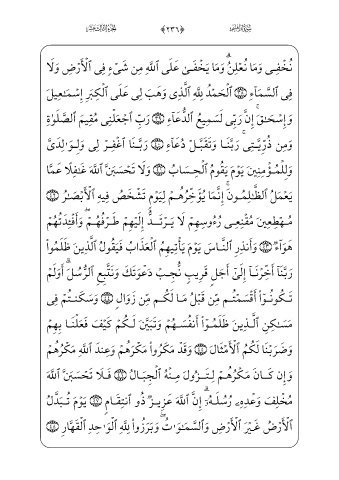 ﴿٢٣٦﴾
نُخْفِى وَمَا نُعْلِنُ ۗ وَمَا يَخْفَىٰ عَلَى ٱللَّهِ مِن شَىْءٍ فِى ٱلْأَرْضِ وَلَا
فِى ٱلسَّمَآءِ ۝ ٱلْحَمْدُ لِلَّهِ ٱلَّذِى وَهَبَ لِى عَلَى ٱلْكِبَرِ إِسْمَـٰعِيلَ
وَإِسْحَـٰقَ ۚ إِنَّ رَبِّى لَسَمِيعُ ٱلدُّعَآءِ ۝ رَبِّ ٱجْعَلْنِى مُقِيمَ ٱلصَّلَوٰةِ
وَمِن ذُرِّيَّتِى ۚ رَبَّنَا وَتَقَبَّلْ دُعَآءِ ۝ رَبَّنَا ٱغْفِرْ لِى وَلِوَٰلِدَىَّ
وَلِلْمُؤْمِنِينَ يَوْمَ يَقُومُ ٱلْحِسَابُ ۝ وَلَا تَحْسَبَنَّ ٱللَّهَ غَـٰفِلًا عَمَّا
يَعْمَلُ ٱلظَّـٰلِمُونَ ۚ إِنَّمَا يُؤَخِّرُهُمْ لِيَوْمٍ تَشْخَصُ فِيهِ ٱلْأَبْصَـٰرُ ۝
مُهْطِعِينَ مُقْنِعِى رُءُوسِهِمْ لَا يَرْتَدُّ إِلَيْهِمْ طَرْفُهُمْ ۖ وَأَفْـِٔدَتُهُمْ
هَوَآءٌ ۝ وَأَنذِرِ ٱلنَّاسَ يَوْمَ يَأْتِيهِمُ ٱلْعَذَابُ فَيَقُولُ ٱلَّذِينَ ظَلَمُوا۟
رَبَّنَآ أَخِّرْنَآ إِلَىٰٓ أَجَلٍ قَرِيبٍ نُّجِبْ دَعْوَتَكَ وَنَتَّبِعِ ٱلرُّسُلَ ۗ أَوَلَمْ
تَكُونُوٓا۟ أَقْسَمْتُم مِّن قَبْلُ مَا لَكُم مِّن زَوَالٍ ۝ وَسَكَنتُمْ فِى
مَسَـٰكِنِ ٱلَّذِينَ ظَلَمُوٓا۟ أَنفُسَهُمْ وَتَبَيَّنَ لَكُمْ كَيْفَ فَعَلْنَا بِهِمْ
وَضَرَبْنَا لَكُمُ ٱلْأَمْثَالَ ۝ وَقَدْ مَكَرُوا۟ مَكْرَهُمْ وَعِندَ ٱللَّهِ مَكْرُهُمْ
وَإِن كَانَ مَكْرُهُمْ لِتَزُولَ مِنْهُ ٱلْجِبَالُ ۝ فَلَا تَحْسَبَنَّ ٱللَّهَ
مُخْلِفَ وَعْدِهِۦ رُسُلَهُۥٓ ۗ إِنَّ ٱللَّهَ عَزِيزٌ ذُو ٱنتِقَامٍ ۝ يَوْمَ تُبَدَّلُ
ٱلْأَرْضُ غَيْرَ ٱلْأَرْضِ وَٱلسَّمَـٰوَٰتُ ۖ وَبَرَزُوا۟ لِلَّهِ ٱلْوَٰحِدِ ٱلْقَهَّارِ ۝